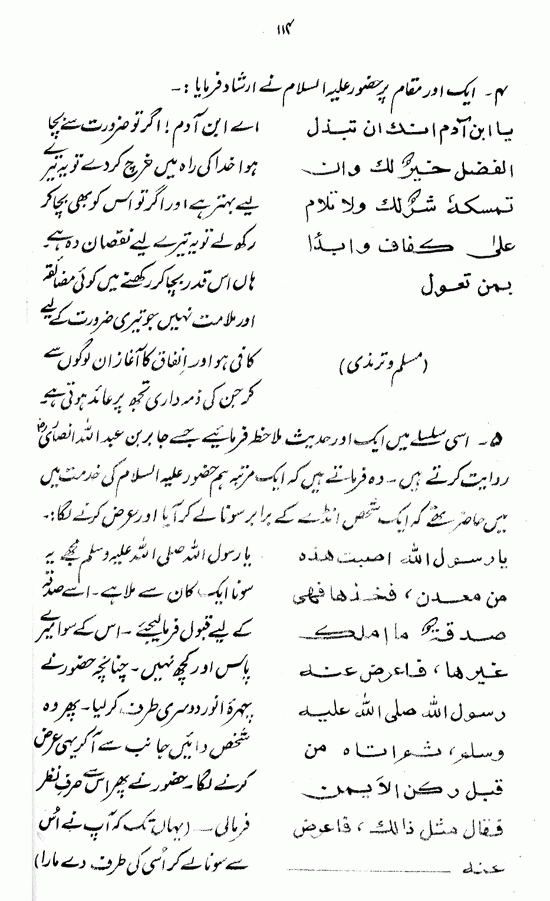 ۱۱۴
۴۔ ایک اور مقام پر حضور علیہ السلام نے ارشاد فرمایا :۔
یا ابن آدم انک ان تبذل
الفضل خیرٌ لک و ان
تمسکہٗ شرٌّ لک ولا تلام
علیٰ کفاف وابدٔا
بمن تعول
(مسلم و ترمذی)
اے ابن آدم! اگر تو ضرورت سے بچا
ہوا خدا کی راہ میں خرچ کر دے تو یہ تیرے
لیے بہتر ہے اور اگر تو اس کو بھی بچا کر
رکھ لے تو یہ تیرے لیے نقصان دہ ہے۔
ہاں اس قدر بچا کر رکھنے میں کوئی مضائقہ
اور ملامت نہیں جو تیری ضرورت کے لیے
کافی ہو اور اِنفاق کا آغاز ان لوگوں سے
کر جن کی ذمہ داری تجھ پر عائد ہوتی ہے۔
۵۔ اسی سلسلے میں ایک اور حدیث ملاحظہ فرمائیے جسے جابر بن عبد اللہ انصاریؓ
روایت کرتے ہیں۔ وہ فرماتے ہیں کہ ایک مرتبہ ہم حضور علیہ السلام کی خدمت میں
میں حاضر تھے کہ ایک شخص انڈے کے برابر سونا لے کر آیا اور عرض کرنے لگا:۔
یا رسول اللہ اصبت ھذہ
من معدن، فخذھا فھی
صدقةٌ ما املک
غیرھا، فاعرض عنہ
رسول اللہ صلی اللہ علیہ
وسلم، ثم اتاہ من
قبل رکن الأیمن
فقال مثل ذالک، فاعرض
عنہ
یا رسول اللہ صلی اللہ علیہ وسلم مجھے یہ
سونا ایک کان سے ملا ہے۔ اسے صدقہ
کے لیے قبول فرما لیجیئے۔ اس کے سوا میرے
پاس اور کچھ نہیں۔ چنانچہ حضور نے
چہرۂ انور دوسری طرف کر لیا۔ پھر وہ
شخص دائیں جانب سے آ کر یہی عرض
کرنے لگا۔ حضور نے پھر اس سے صرفِ نظر
فرمائی۔ (یہاں تک کہ آپ نے اُس
سے سونا لے کر اُسی کی طرف دے مارا)